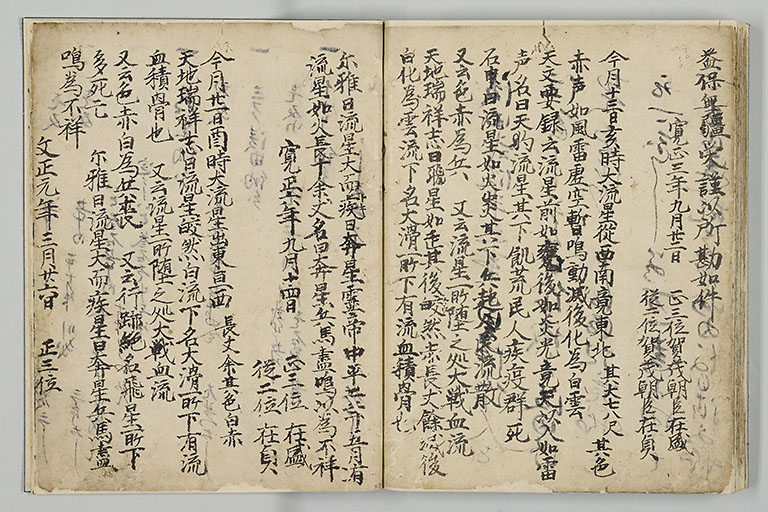 益保無疆栄謹以所勘如件
寛正二年九月廿二日 正三位賀茂朝臣在盛
従二位賀茂朝臣在貞
今月十三日亥時大流星従西南竟東北 其大七八尺 其色
赤声如風雷虚空暫鳴動滅後化為白雲
天文要録云流星前如甕後如炎光竟天 如雷
声名曰天 流星其下飢荒民人疾疫群死
石申曰流星如火炎其下兵起 流
又云色赤為兵 又云流星所堕之処大戦血流
天地瑞祥志曰飛星如 其後皎然 長丈餘滅後
白化為雲流下名大滑所下有流血積骨也
尓雅曰流星大而疾曰奔星霊帝中平 年五月有
流星如火長十余丈名曰奔星兵馬盡鳴以為不祥
寛正六年九月十四日 正三位在盛
従二位在貞
今月廿一日酉時大流星出東自西 長丈余其色白赤
天地瑞祥志曰流星皎然白流下名大滑所下有流
血積骨也 又云流星所堕之処大戦血流
又云色赤白為兵喪 又云行跡絶名飛星所下
多死亡 尓雅曰流星大而疾星曰奔星兵馬盡
鳴為不祥
文正元年三月廿 日 正三位